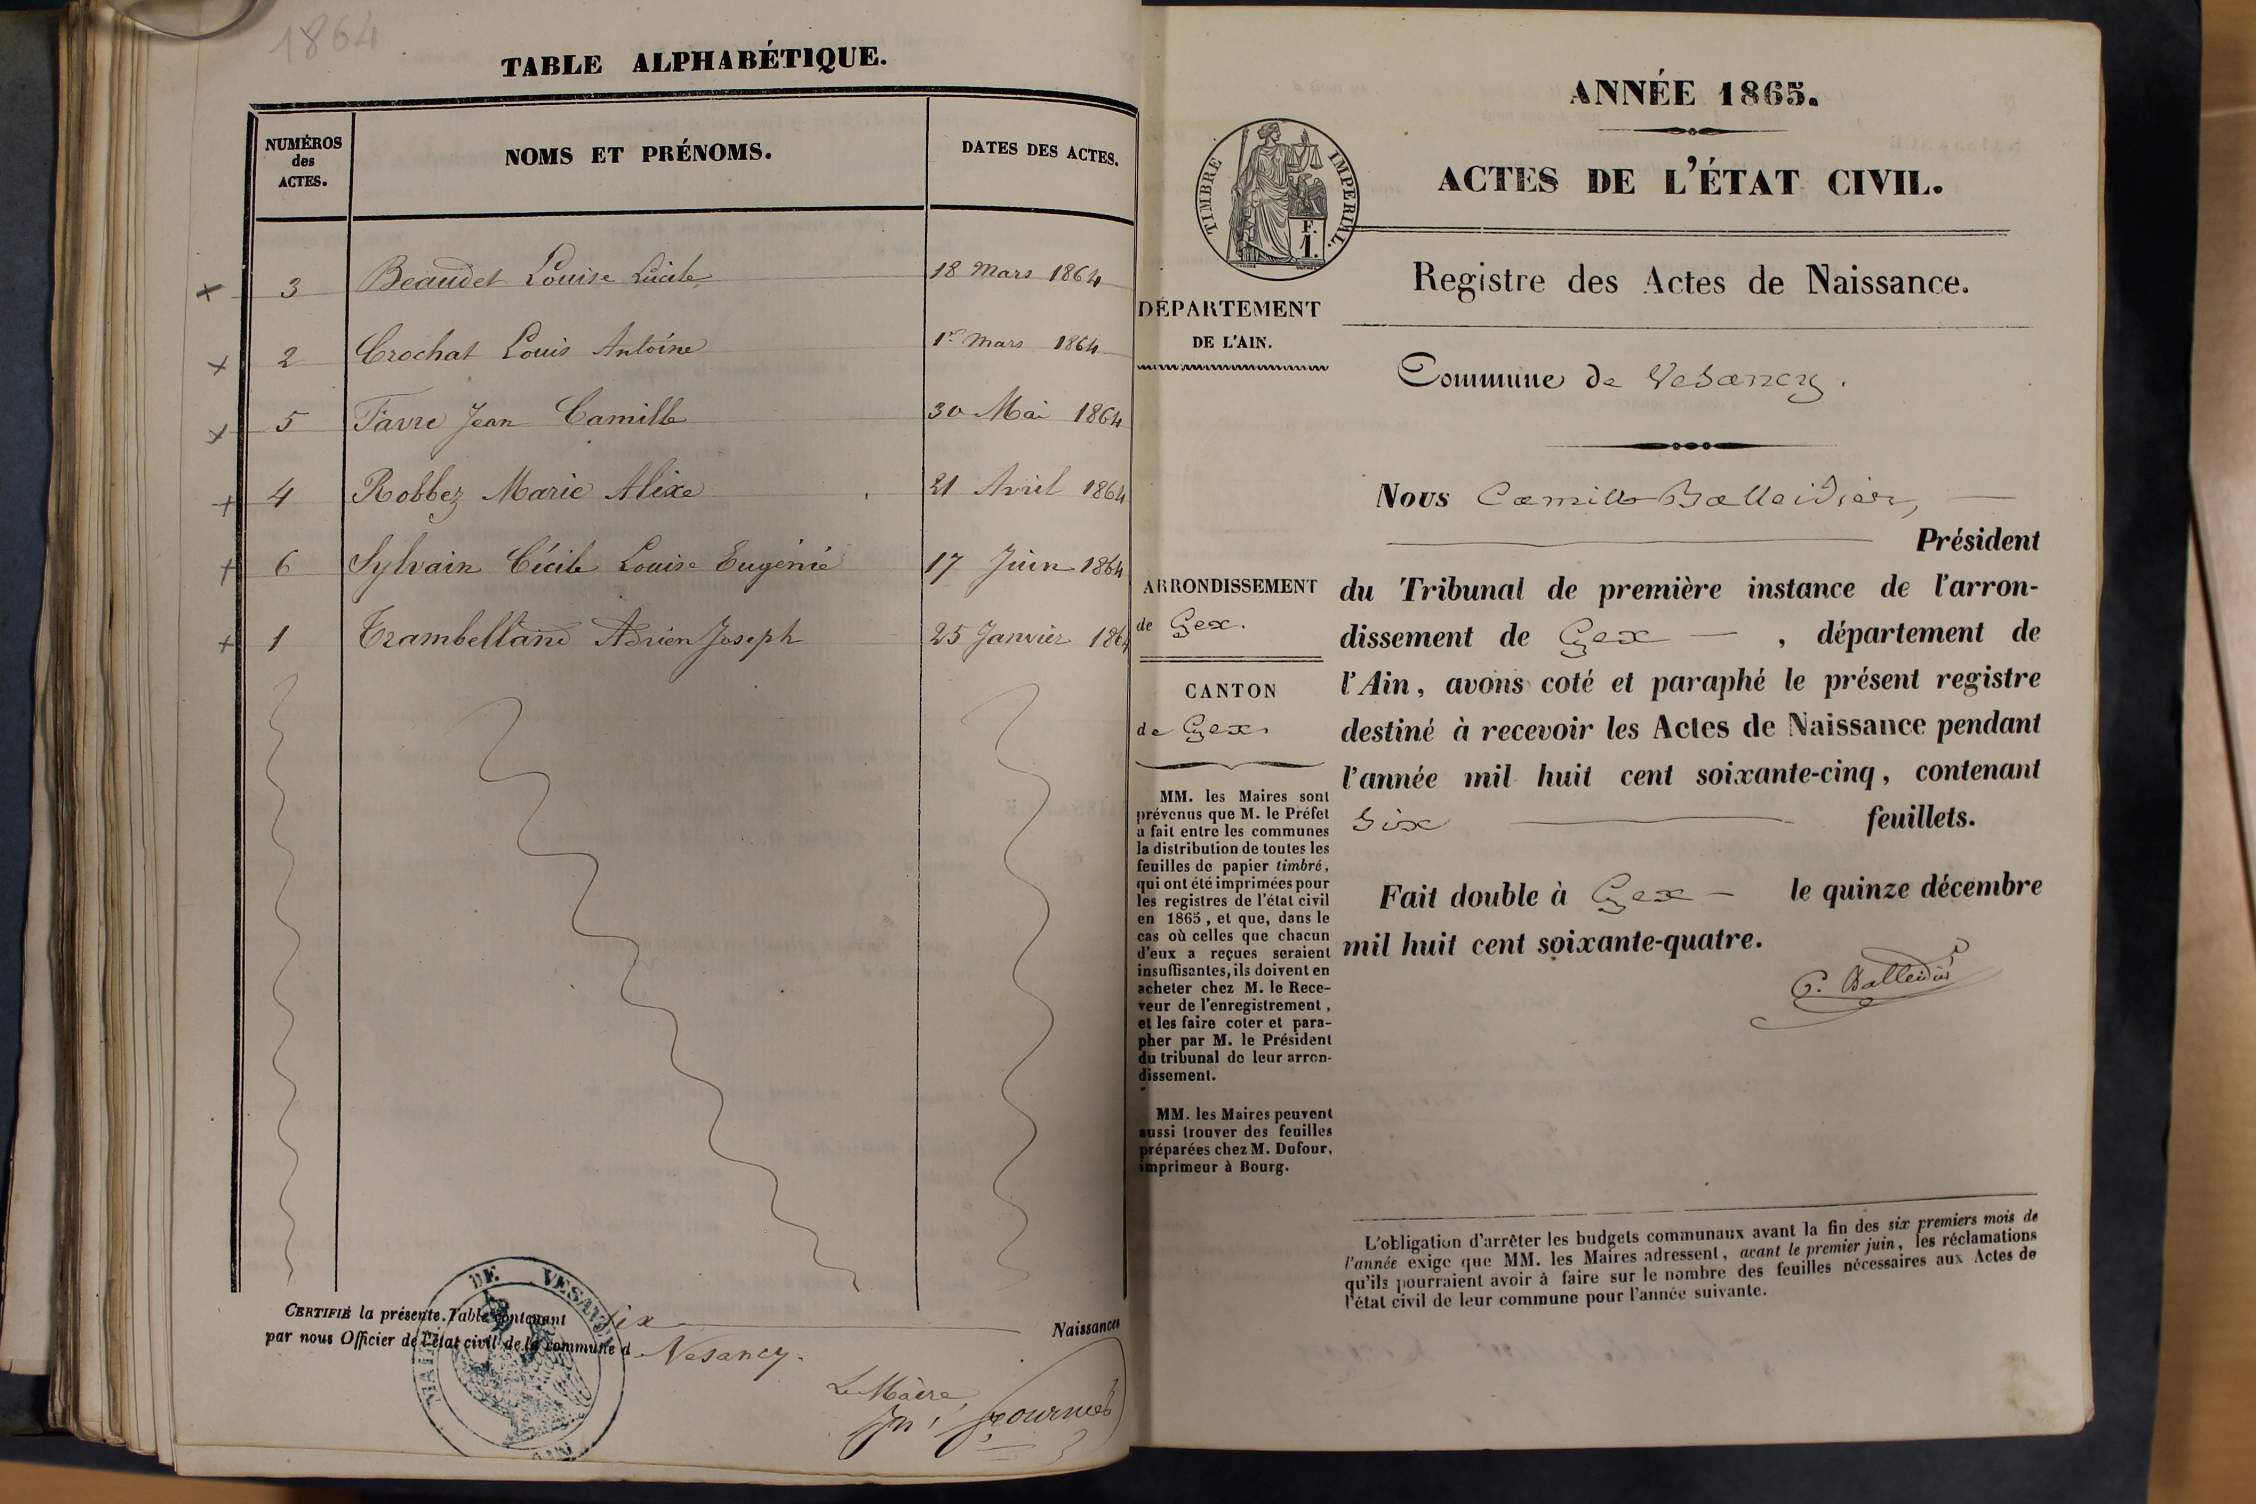 1864
TABLE ALPHABÉTIQUE.
NUMÉROS
des
ACTES.
NOMS ET PRÉNOMS.
DATES DES ACTES.
3 Beaudet Louise Lucile 18 Mars 1864
2 Crochat Louis Antoine 1er Mars 1864
5 Favre Jean Camille 30 Mai 1864
4 Robbez Marie Alixe 21 Avril 1864
6 Sylvain Cécile Louise Eugénie 17 Juin 1864
1 Trambelland Adrien Joseph 25 Janvier 1864
CERTIFIÉ la présente Table contenant six Naissances
par nous Officier de l'état civil de la commune d Vesancy.
DE VESANCY
Le Maire,
ANNÉE 1865.
ACTES DE L'ÉTAT CIVIL.
TIMBRE IMPERIAL.
F.
1.
Registre des Actes de Naissance.
DÉPARTEMENT
DE L'AIN.
Commune de Vesancy.
ARRONDISSEMENT
de Gex.
CANTON
de Gex.
MM. les Maires sont
prévenus que M. le Préfet
a fait entre les communes
la distribution de toutes les
feuilles de papier timbré,
qui ont été imprimées pour
les registres de l'état civil
en 1865, et que, dans le
cas où celles que chacun
d'eux a reçues seraient
insuffisantes, ils doivent en
acheter chez M. le Rece-
veur de l'enregistrement,
et les faire coter et para-
pher par M. le Président
du tribunal de leur arron-
dissement.
MM. les Maires peuvent
aussi trouver des feuilles
préparées chez M. Dufour,
imprimeur à Bourg.
Nous Camille Balleidier,
Président
du Tribunal de première instance de l'arron-
dissement de Gex, département de
l'Ain, avons coté et paraphé le présent registre
destiné à recevoir les Actes de Naissance pendant
l'année mil huit cent soixante-cinq, contenant
Six feuillets.
Fait double à Gex le quinze décembre
mil huit cent soixante-quatre.
C. Balleidier
L'obligation d'arrêter les budgets communaux avant la fin des six premiers mois de
l'année exige que MM. les Maires adressent, avant le premier juin, les réclamations
qu'ils pourraient avoir à faire sur le nombre des feuilles nécessaires aux Actes de
l'état civil de leur commune pour l'année suivante.